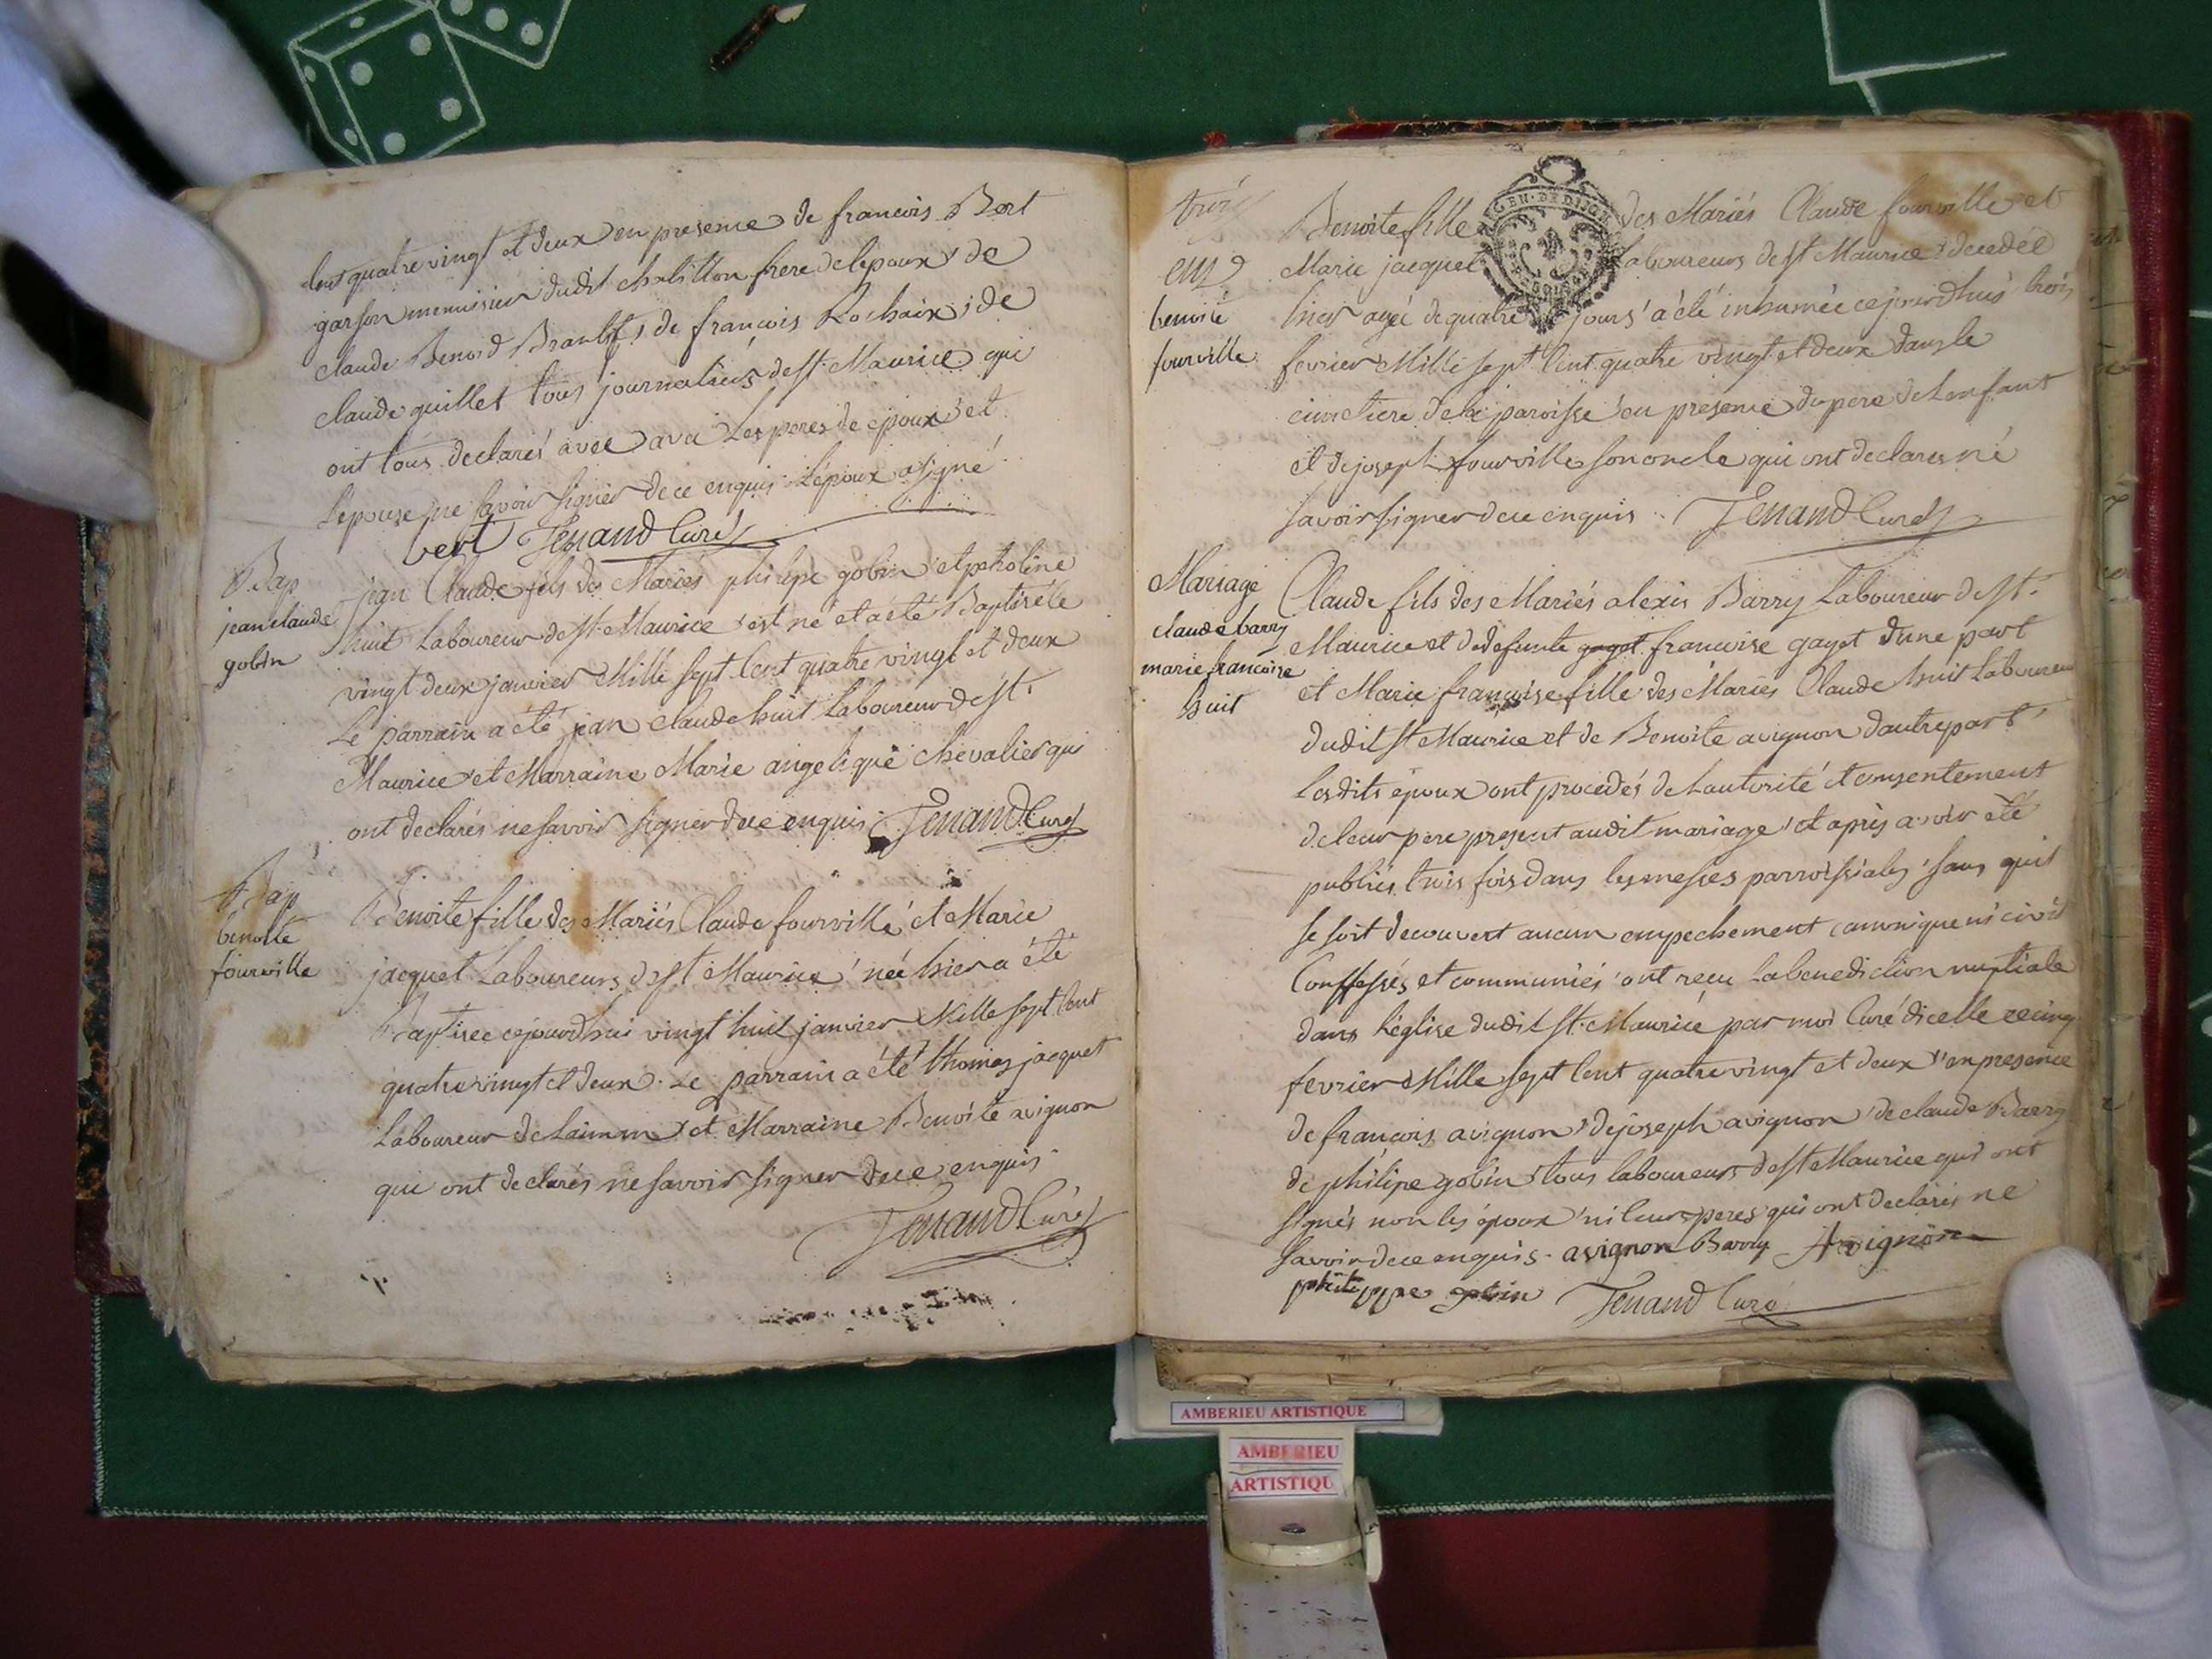 Cent quatre vingt et deux en presence de francois Bert
garson menuisier dudit chatillon frere de lepoux de
claude Benoid Brault, de francois Rochaix, de
claude guillet tous journaliers de st Maurice qui
ont tous declarés avec avec Les peres de epoux et
L'epouse ne savoir signer de ce enquis L'époux a signé
vert Tenand Curé
Bap
jean claude
gobin
jean Claude fils des Mariés philipe gobin et petroline
huit Laboureur de st Maurice est né et a eté Baptisé le
vingt deux janvier Mille sept Cent quatre vingt et deux
Le parrain a été jean claude huit Laboureur de st.
Maurice et Marraine Marie angelique chevalier qui
ont declarés ne savoir signer de ce enquis Tenand Curé
Bap
benoite
fourville
Benoite fille des Mariés Claude fourville et Marie
jacquet Laboureurs de st Maurice née hier a été
Baptisee cejourdhui vingt huit janvier Mille sept Cent
quatre vingt et deux. Le parrain a été thomas jacquet
Laboureur de et Marraine Benoite avignon
qui ont declarés ne savoir signer de ce enquis.
Tenand Curé
GEN. DE DIJON
benoite
fourville
Benoite fille des Mariés Claude fourville et
Marie jacquet Laboureurs de st Maurice decedée
hier agée de quatre jours a été inhumée cejourdhui trois
fevrier Mille sept Cent quatre vingt et deux dans le
cimetiere de la paroisse en presence du pere de Lenfant
et de joseph fourville son oncle qui ont declares né
savoir signer de ce enquis Tenand Curé
Mariage
claude barry
marie francoise
huit
Claude fils des Mariés alexis Barry Laboureur de st.
Maurice et de defunte gayet francoise gayet dune part
et Marie françoise fille des Mariés Claude huit Laboureur
dudit st Maurice et de Benoite avignon dautre part
Lesdits époux ont procedés de Lautorité et consentement
de leur pere present audit mariage et après avoir été
publiés trois fois dans les messes parroissiales sans quil
se soit decouvert aucun empechement canonique ni civil
Confessés et communiés ont reçu La benediction nuptiale
dans L'église dudit st Maurice par moi Curé dicelle ce cinq
fevrier Mille sept Cent quatre vingt et deux en presence
de françois avignon de joseph avignon de claude Barry
de philipe gobin tous laboureurs de st Maurice qui ont
signés non les époux ni leurs peres qui ont declarés ne
savoir de ce enquis. avignon Barry Avignon
philippe gobin Tenand Curé
AMBERIEU ARTISTIQUE
AMBERIEU
ARTISTIQU